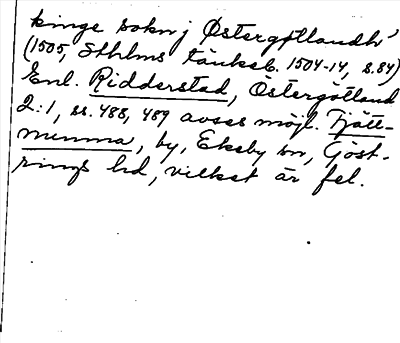 kinge sokn j Østergøtlandh'
(1505, Sthlms tänkeb. 1504-14, s.84)
Enl. Ridderstad, Östergötland
2:1, ss. 488, 489 avses möjl. Tjätt-
menma, by, Ekeby sn, Göst-
rings hd, vilket är fel.